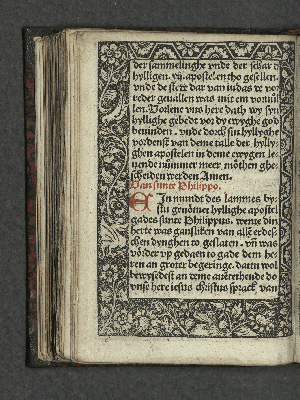 der sammelinghe vnde der schar d
hylligen. xij. apostelen tho gesellen.
vnde de stede dar van iudas de vor
reder geuallen was mit em voruül
len. Vorlene vns here dath wy syn
hyllighe gebedt vor dy ewyghe god
beuinden. vnde dorch sin hyllyghe
vordenst van deme talle der hylly
ghen apostelen in deme ewygen le
uende nümmer meer möthen ghe
scheiden werden Amen.
Van sunte Philippo.
EIn munde des lammes by
stu genömet hyllighe apostel
gades sunte Philippus. wente din
herte was gansliken van alle erdes
chen dynghen to geslaten. vñ was
vörder vp gedaen to gade dem he
ren an groter begeringe. dattu wol
bewysedest an deme auërthende do
vnse here iesus christus sprack van